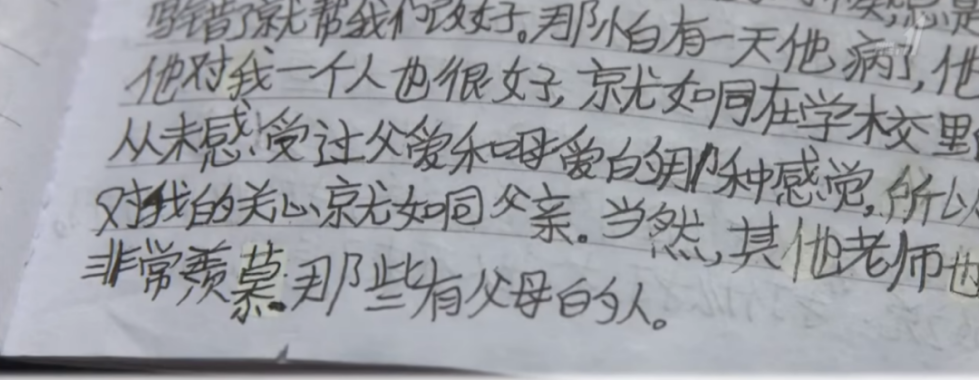 错了就帮我们改好。那怕有一天他病了,他
他对我一个人也很好,就如同在学校里
从未感受过父爱和母爱的那种感觉,所以
对我的关心就如同父亲。当然,其他老师也
非常羡慕那些有父母的人。